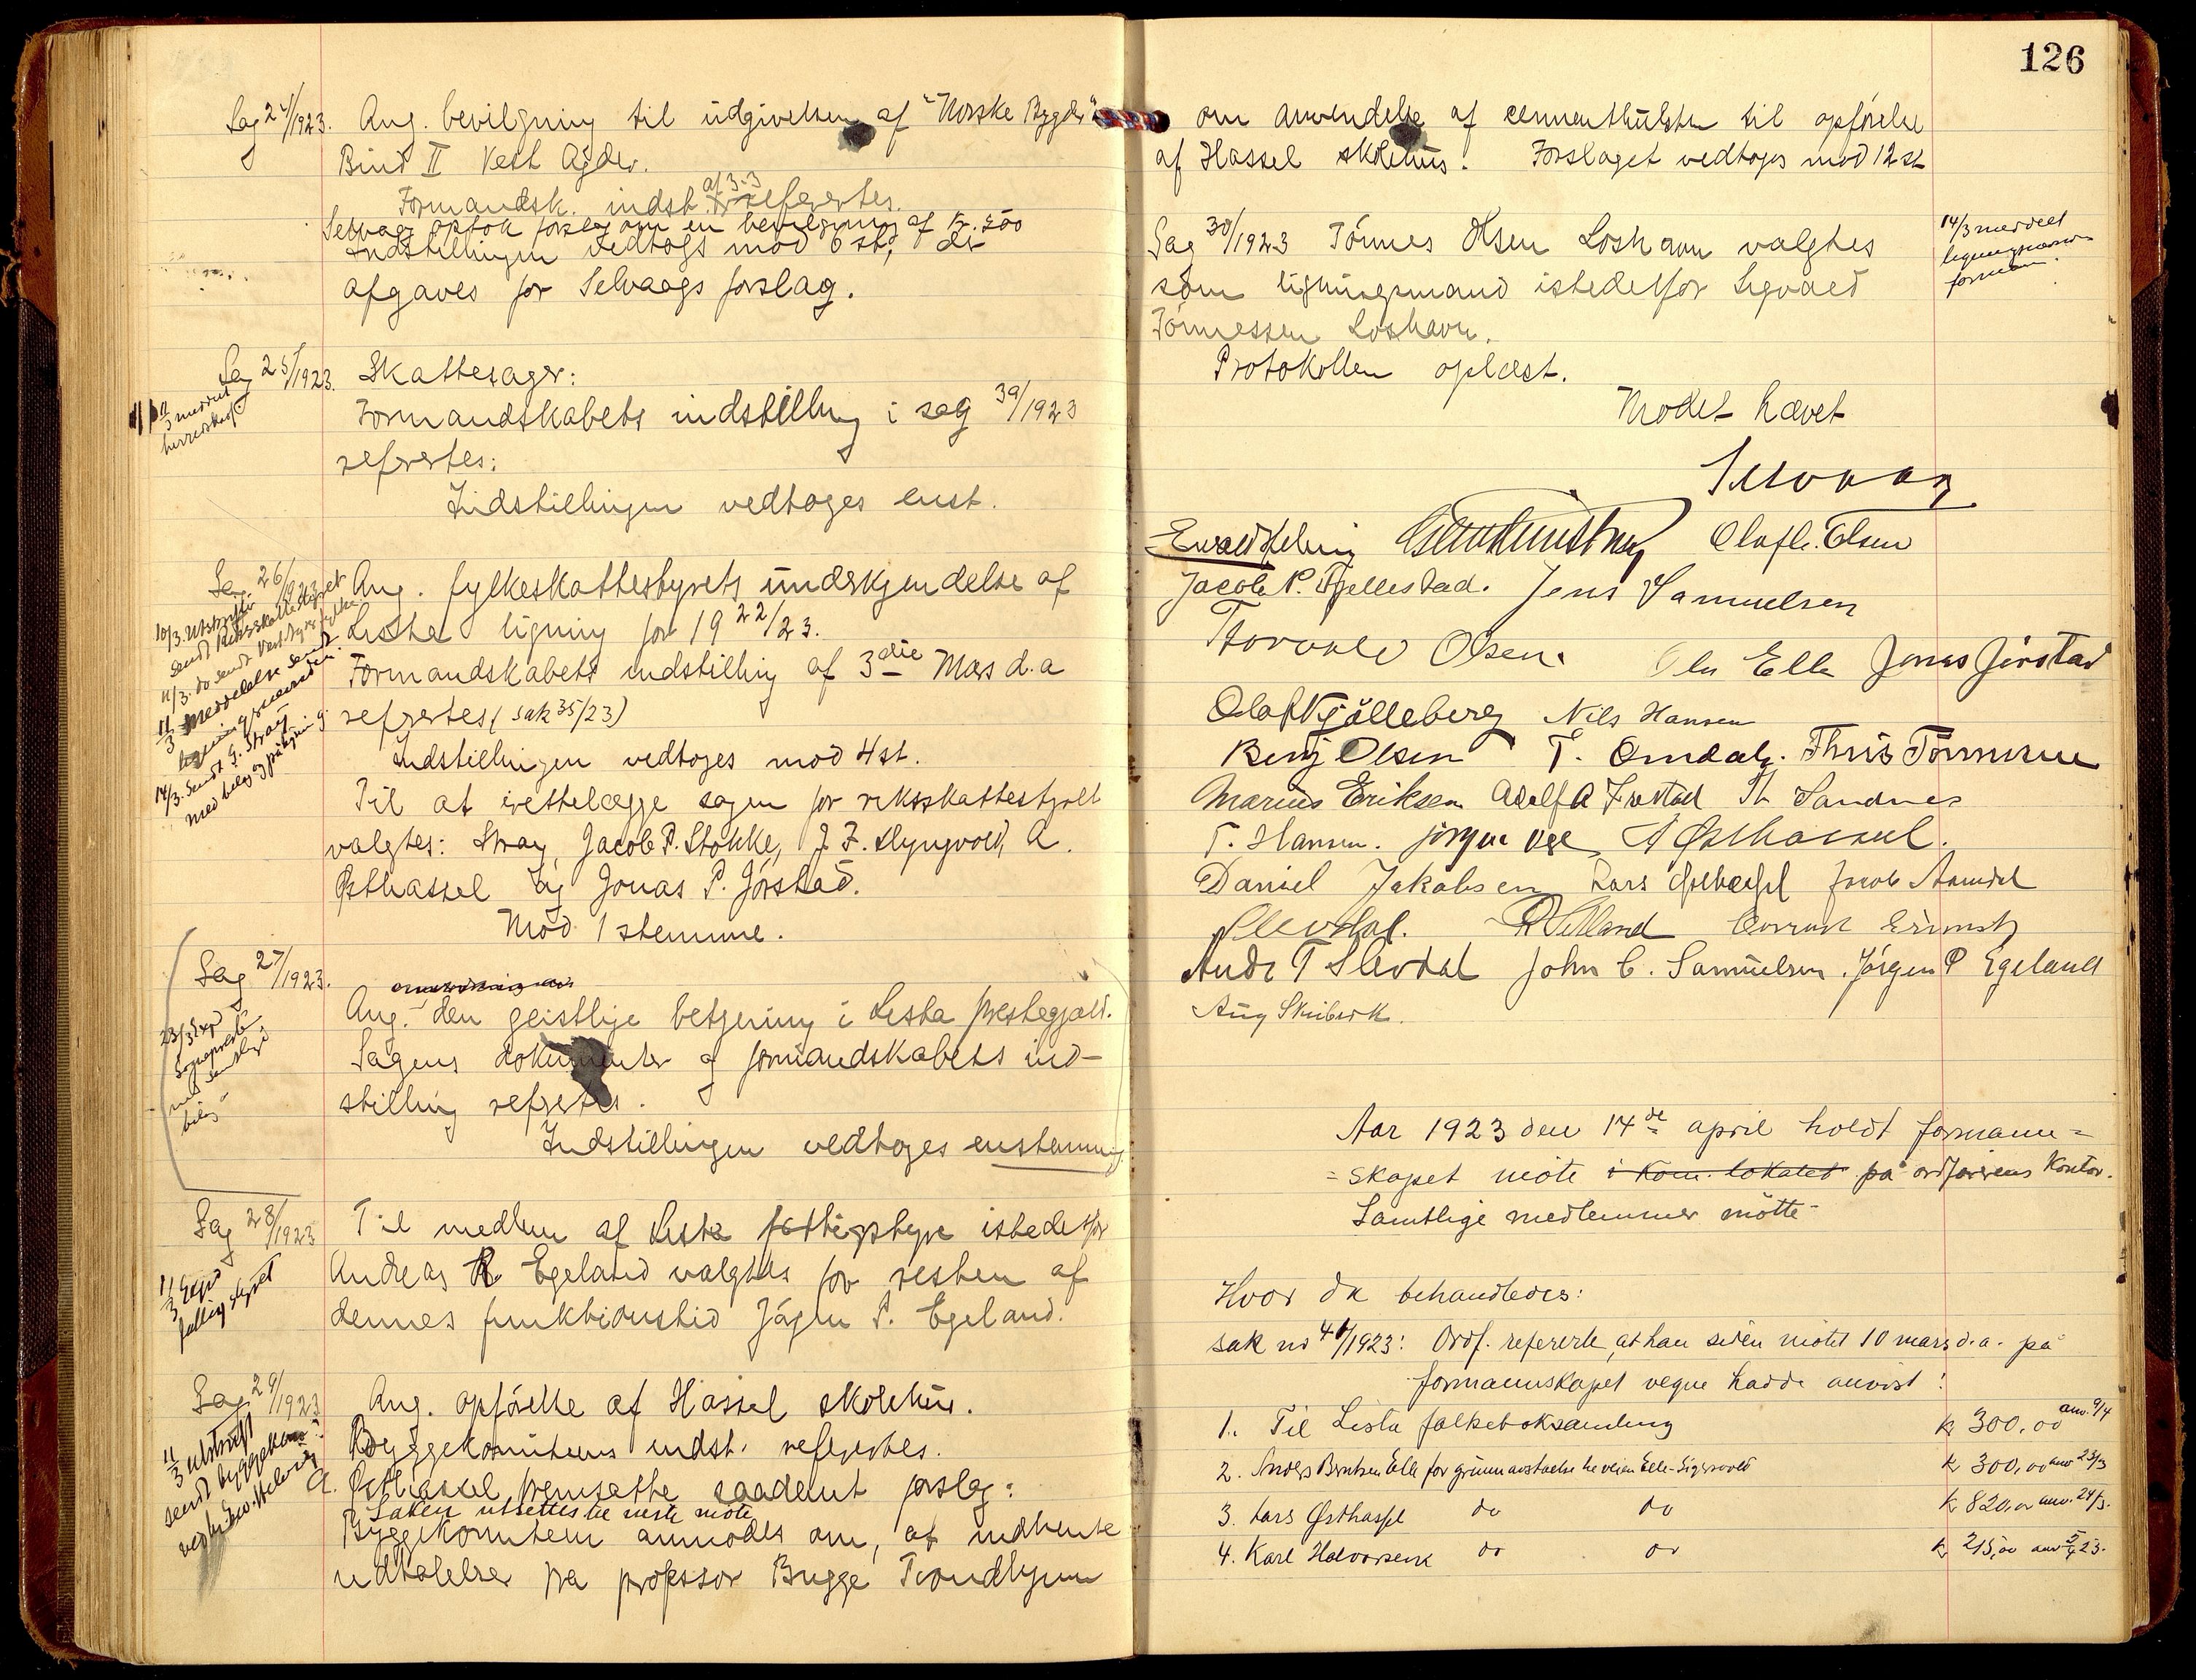 Sag 24/1923. Ang. bevilgning til udgivelsen af "Norske Bygder"
Bind II Vest Agder.
Formandsk. indst. af 3-3 refertes.
Selvaag optok forslag om en bevilgning af kr. 500
Indstillingen vedtogs mod 6 st, der
afgaves for Selvaags forslag.
Sag 25/1923. Skattesager:
Formandskabets indstilling i sag 39/1923
refertes:
Indstillingen vedtoges enst.
Sag 26/1923 Ang. fylkeskattestyrets underkjendelse af
Lista ligning for 1922/23.
10/3. Utskrift
sendt Riksskattestyret
11/3. do sendt Vest Agder fylke
11/3 meddelelse sendt
14/3. Sendt G. Stray
med bilag og påtegning
Formandskabets indstilling af 3die Mars d.a
refertes (sak 35/23)
Indstillingen vedtoges mod 4 st.
Til at irettelægge sagen for riksskattestyret
valgtes: Stray, Jacob P. Stokke, J. F. Lyngvold, A.
Østhassel og Jonas P. Jørstad.
Mod 1 stemme.
Sag 27/1923.
Ang. den geistlige betjening i Lista prestegjæld.
23/3 Exp
Sogneprest
med samtlige
bilag
Sagens dokumenter og formandskabets ind-
stilling refertes.
Indstillingen vedtoges enstemmig
Sag 28/1923 Til medlem af Lista fattigstyre istedetfor
11/3 Exp
fattigstyret
Andreas R Egeland valgtes for resten af
dennes funktionstid Jørgen P. Egeland.
Sag 29/1923 Ang. opførelse af Hassel skolehus.
11/3 utskrift
sendt byggekom
ved Ew. Helvig
Byggekomiteens indst. refertes.
A. Østhassel fremsatte saadant forslag:
Saken utsettes til neste møte
Byggekomiteen anmodes om, at indhente
udtalelse fra professor Bugge Trondhjem
126
om anvendelse af cementhulsten til opførelse
af Hassel skolehus. Forslaget vedtoges mod 12 st
Sag 30/1923 Tönnes Olsen Loshavn valgtes
14/3 meddelt
ligningsnevnds
formann.
som ligningsmand istedetfor Sigvald
Tönnessen Loshavn.
Protokollen oplæst.
Mödet hævet
Selvaag
Ewald Helvig Olaf G. Olsen
Jacob P. Fjellestad. Jens Samuelsen
Torvald Olsen. Ole Elle Jonas Jörstad
Olaf Kjölleberg Nils Hansen
Benj Olsen T. Omdal. Thris Tönnessen
Marius Eriksen Adolf A Frestad Th Sandnes
T. Hansen. Jørgen Ore A Østhassel.
Daniel Jakobsen Lars Østhassel Jacob Aamdal
Slevdal.
Andr T Slevdal John C. Samuelsen. Jørgen P Egeland
Aug Skeibrok.
Aar 1923 den 14de april holdt formann=
=skapet møte i kom. lokalet på ordførerens kontor.
Samtlige medlemmer møtte
Hvor da behandledes:
sak nr 41/1923: Ordf. refererte, at han siden møtet 10 mars d.a. på
formannskapet vegne hadde anvist:
1. Til Lista folkeboksamling kr 300,00 anv. 9/4
2. Anders Berntsen Elle for grunnavstaelse til veien Elle-Sigersvold kr 300,00 anv 23/3
3. Lars Østhassel do do kr 820,00 anv. 24/3.
4. Karl Halvorsen do do kr 215,00 anv 5/4 23.